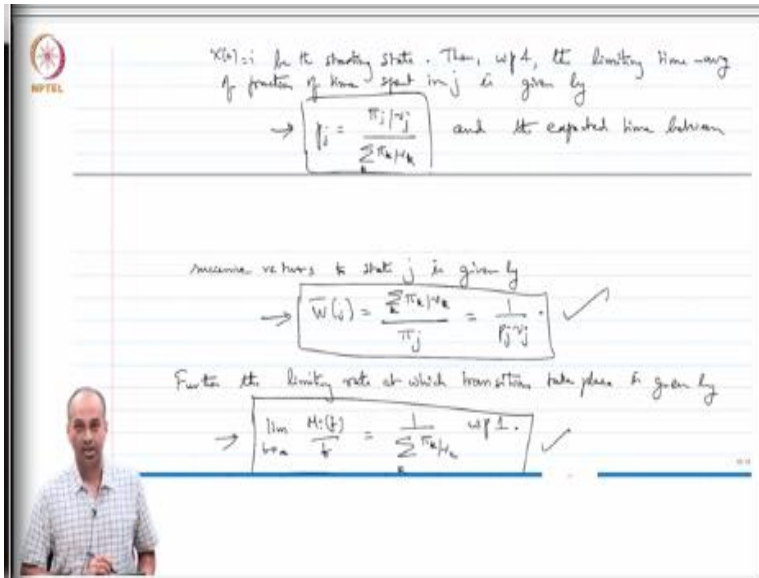 NPTEL
X(0)=i be the starting state. Then, wp1, the limiting time-avg
of fraction of time spent in j is given by
→ p_j = (π_j/ν_j) / (∑_k π_k/ν_k) and the expected time between
successive returns to state j is given by
→ W̄(j) = (∑_k π_k/ν_k) / π_j = 1 / (p_j ν_j). ✓
Further the limiting rate at which transitions take place is given by
→ lim_{t→∞} M_i(t)/t = 1 / (∑_k π_k/ν_k) wp1. ✓